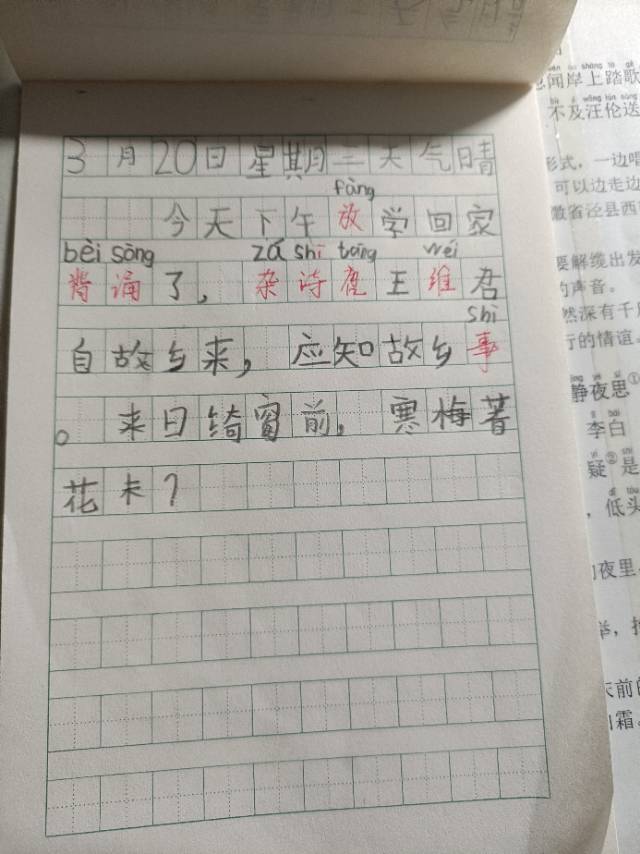 3月20日星期三天气晴
fàng
今天下午放学回家
bèi sòng zá shī táng wéi
背诵了，杂诗唐王维君
shì
自故乡来，应知故乡事
。来日绮窗前，寒梅著
花未？
闻岸上踏歌
不及汪伦送
形式，一边唱
可以边走边
徽省泾县西
要解缆出发
的声音。
然深有千
行的情谊。
静夜思①
李白
疑②是
，低头
夜里
举，
前的
霜。